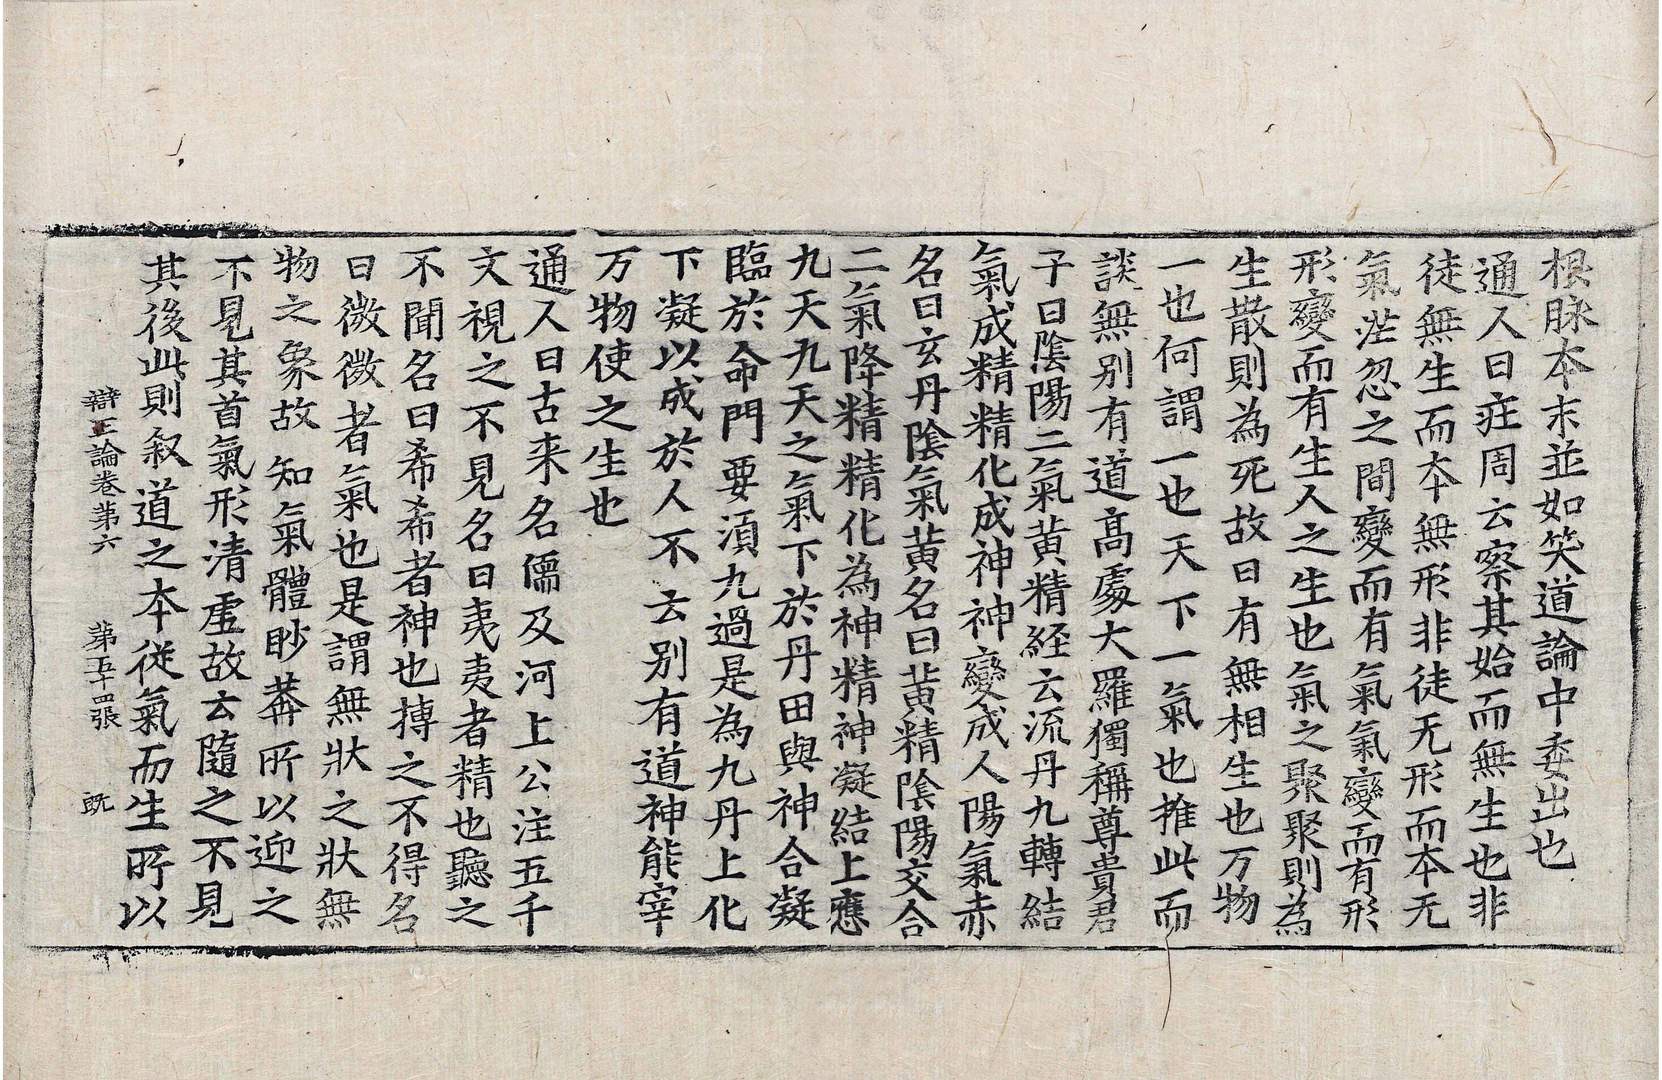 根脉本末並如笑道論中委出也
通人曰庄周云察其始而無生也非
徒無生而本無形非徒无形而本无
氣茫忽之間變而有氣氣變而有形
形變而有生人之生也氣之聚聚則為
生散則為死故曰有無相生也万物
一也何謂一也天下一氣也推此而
談無別有道髙處大羅獨稱尊貴君
子曰陰陽二氣黄精經云流丹九轉結
氣成精精化成神神變成人陽氣赤
名曰玄丹陰氣黄名曰黄精陰陽交合
二氣降精精化為神精神凝結上應
九天九天之氣下於丹田與神合凝
臨於命門要湏九過是為九丹上化
下凝以成於人不云别有道神能宰
万物使之生也
通人曰古来名儒及河上公注五千
文視之不見名曰夷夷者精也聽之
不聞名曰希希者神也搏之不得名
曰微微者氣也是謂無狀之狀無
物之象故知氣體眇莽所以迎之
不見其首氣形清虛故云隨之不見
其後此則叙道之本從氣而生所以
辯正論卷第六 第五十四張 既